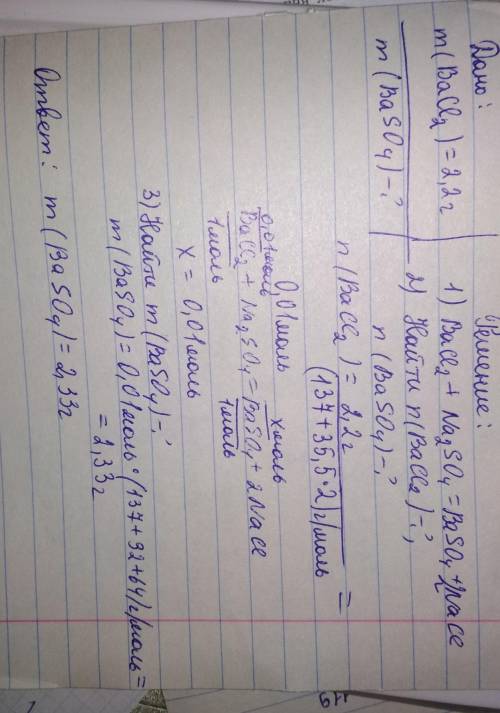 Дано:
m(BaCl₂)=2,2г
m(BaSO₄)-?
Решение:
1) BaCl₂+Na₂SO₄=BaSO₄+2NaCl
2) Найти n(BaCl₂)-?,
n(BaSO₄)-?
n(BaCl₂)= 2,2г
(137+35,5·2)г/моль =
0,01моль
0,01моль хмоль
BaCl₂ + Na₂SO₄=BaSO₄+2NaCl
1моль 1моль
x = 0,01моль
3) Найти m(BaSO₄)-?
m(BaSO₄)=0,01моль·(137+32+64)г/моль=
= 2,33г
Ответ: m(BaSO₄)=2,33г
119